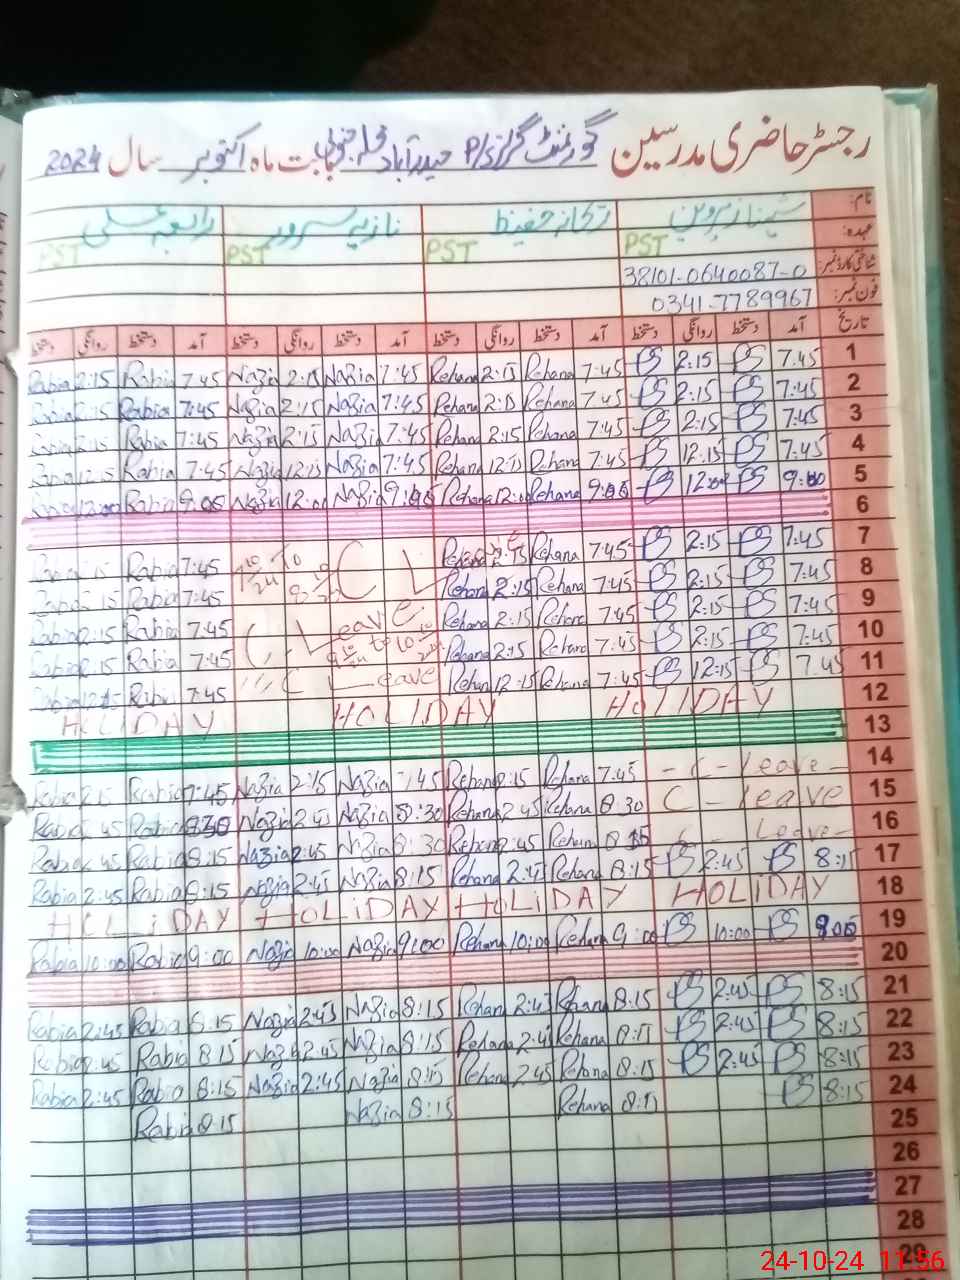 رجسٹر حاضری مدرسین گورنمنٹ گرلز P/S حیدرآباد بابت ماہ اکتوبر سال 2024
نام: شہناز پروین ریحانہ حفیظ نازیہ سرور رابعہ علی
عہدہ: PST PST PST PST
شناختی کارڈ نمبر: 38101-0640087-0
فون نمبر: 0341-7789967
تاریخ آمد دستخط روانگی دستخط آمد دستخط روانگی دستخط آمد دستخط روانگی دستخط آمد دستخط روانگی دستخط
1 7:45 PS 2:15 PS 7:45 Rehana 2:15 Rehana 7:45 Nazia 2:15 Nazia 7:45 Rabia 2:15 Rabia
2 7:45 PS 2:15 PS 7:45 Rehana 2:15 Rehana 7:45 Nazia 2:15 Nazia 7:45 Rabia 2:15 Rabia
3 7:45 PS 2:15 PS 7:45 Rehana 2:15 Rehana 7:45 Nazia 2:15 Nazia 7:45 Rabia 2:15 Rabia
4 7:45 PS 12:15 PS 7:45 Rehana 12:15 Rehana 7:45 Nazia 12:15 Nazia 7:45 Rabia 12:15 Rabia
5 9:00 PS 12:00 PS 9:00 Rehana 12:00 Rehana 9:00 Nazia 12:00 Nazia 9:00 Rabia 12:00 Rabia
6
7 7:45 PS 2:15 PS 7:45 Rehana 2:15 Rehana C L 7:45 Rabia 2:15 Rabia
8 7:45 PS 2:15 PS 7:45 Rehana 2:15 Rehana 7:45 Rabia 2:15 Rabia
9 7:45 PS 2:15 PS 7:45 Rehana 2:15 Rehana C. Leave 7:45 Rabia 2:15 Rabia
10 7:45 PS 2:15 PS 7:45 Rehana 2:15 Rehana 7:45 Rabia 2:15 Rabia
11 7:45 PS 12:15 PS 7:45 Rehana 12:15 Rehana C Leave 7:45 Rabia 12:15 Rabia
12 HOLIDAY HOLIDAY HOLIDAY
13
14 - C - Leave - 7:45 Rehana 2:15 Rehana 7:45 Nazia 2:15 Nazia 7:45 Rabia 2:15 Rabia
15 C - Leave 8:30 Rehana 2:45 Rehana 8:30 Nazia 2:45 Nazia 8:30 Rabia 2:45 Rabia
16 C - Leave - 8:15 Rehana 2:45 Rehana 8:30 Nazia 2:45 Nazia 8:15 Rabia 2:45 Rabia
17 8:15 PS 2:45 PS 8:15 Rehana 2:45 Rehana 8:15 Nazia 2:45 Nazia 8:15 Rabia 2:45 Rabia
18 HOLIDAY HOLIDAY HOLIDAY HOLIDAY
19 9:00 PS 10:00 PS 9:00 Rehana 10:00 Rehana 9:00 Nazia 10:00 Nazia 9:00 Rabia 10:00 Rabia
20
21 8:15 PS 2:45 PS 8:15 Rehana 2:45 Rehana 8:15 Nazia 2:45 Nazia 8:15 Rabia 2:45 Rabia
22 8:15 PS 2:45 PS 8:15 Rehana 2:45 Rehana 8:15 Nazia 2:45 Nazia 8:15 Rabia 2:45 Rabia
23 8:15 PS 2:45 PS 8:15 Rehana 2:45 Rehana 8:15 Nazia 2:45 Nazia 8:15 Rabia 2:45 Rabia
24 8:15 PS 8:15 Rehana 8:15 Nazia 8:15 Rabia
25
26
27
28
29
24-10-24 11:56